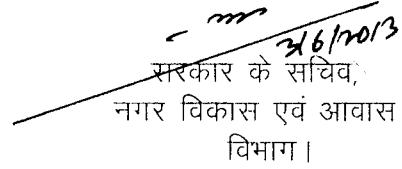 3/6/2013
सरकार के सचिव,
नगर विकास एवं आवास
विभाग।